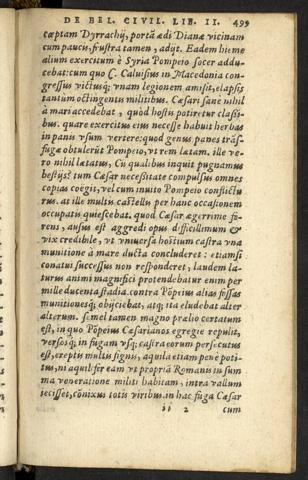 DE BEL. CIVIL. LIB. II. 499
cœptam Dyrrachij, portã ædi Dianæ vicinam
cum pauci, frustra tamen, adijt. Eadem hieme
alium exercitum è Syria Pompeio socer addu-
cebat: cum quo C. Caluisius in Macedonia con-
gressus victusq; vnam legionem amisit, elapsis
tantùm octingentis militibus. Cæsari sanè nihil
à mari accedebat, quòd hostis potiretur classi-
bus. quare exercitus eius necesse habuit herbas
in panis vsum vertere: quod genus panes trãs-
fugæ obtulerũt Pompeio, vt rem lætam. ille ve-
rò nihil lætatus, Cũ qualibus inquit pugnamus
bestijs? tum Cæsar necessitate compulsus omnes
copias coëgit, vel cum inuito Pompeio conflictu-
rus. at ille multis castellis per hanc occasionem
occupatis quiescebat. quod Cæsar ægerrimè fe-
rens, ausus est aggredi opus difficillimum &
vix credibile, vt vniuersa hostium castra vna
munitione à mare ducta concluderet: etiamsi
conatui successus non responderet, laudem la-
turus animi magnifici protendebatur enim per
mille ducenta stadia. contra Põpeius alias fossas
munitionesq; obijciebat, atq; ita eludebat alter
alterum. semel tamen magno prælio certatum
est, in quo Põpeius Cæsarianos egregiè repulit,
versosq; in fugam vsq; castra eorum persecutus
est, ereptis multis signis, aquila etiam penè poti-
tus, ni aquilifer eam vt propriã Romanis in sum
ma veneratione militi habitam, intra vallum
iecisset, cõnixus totis viribus. in hac fuga Cæsar
ii 2 cum